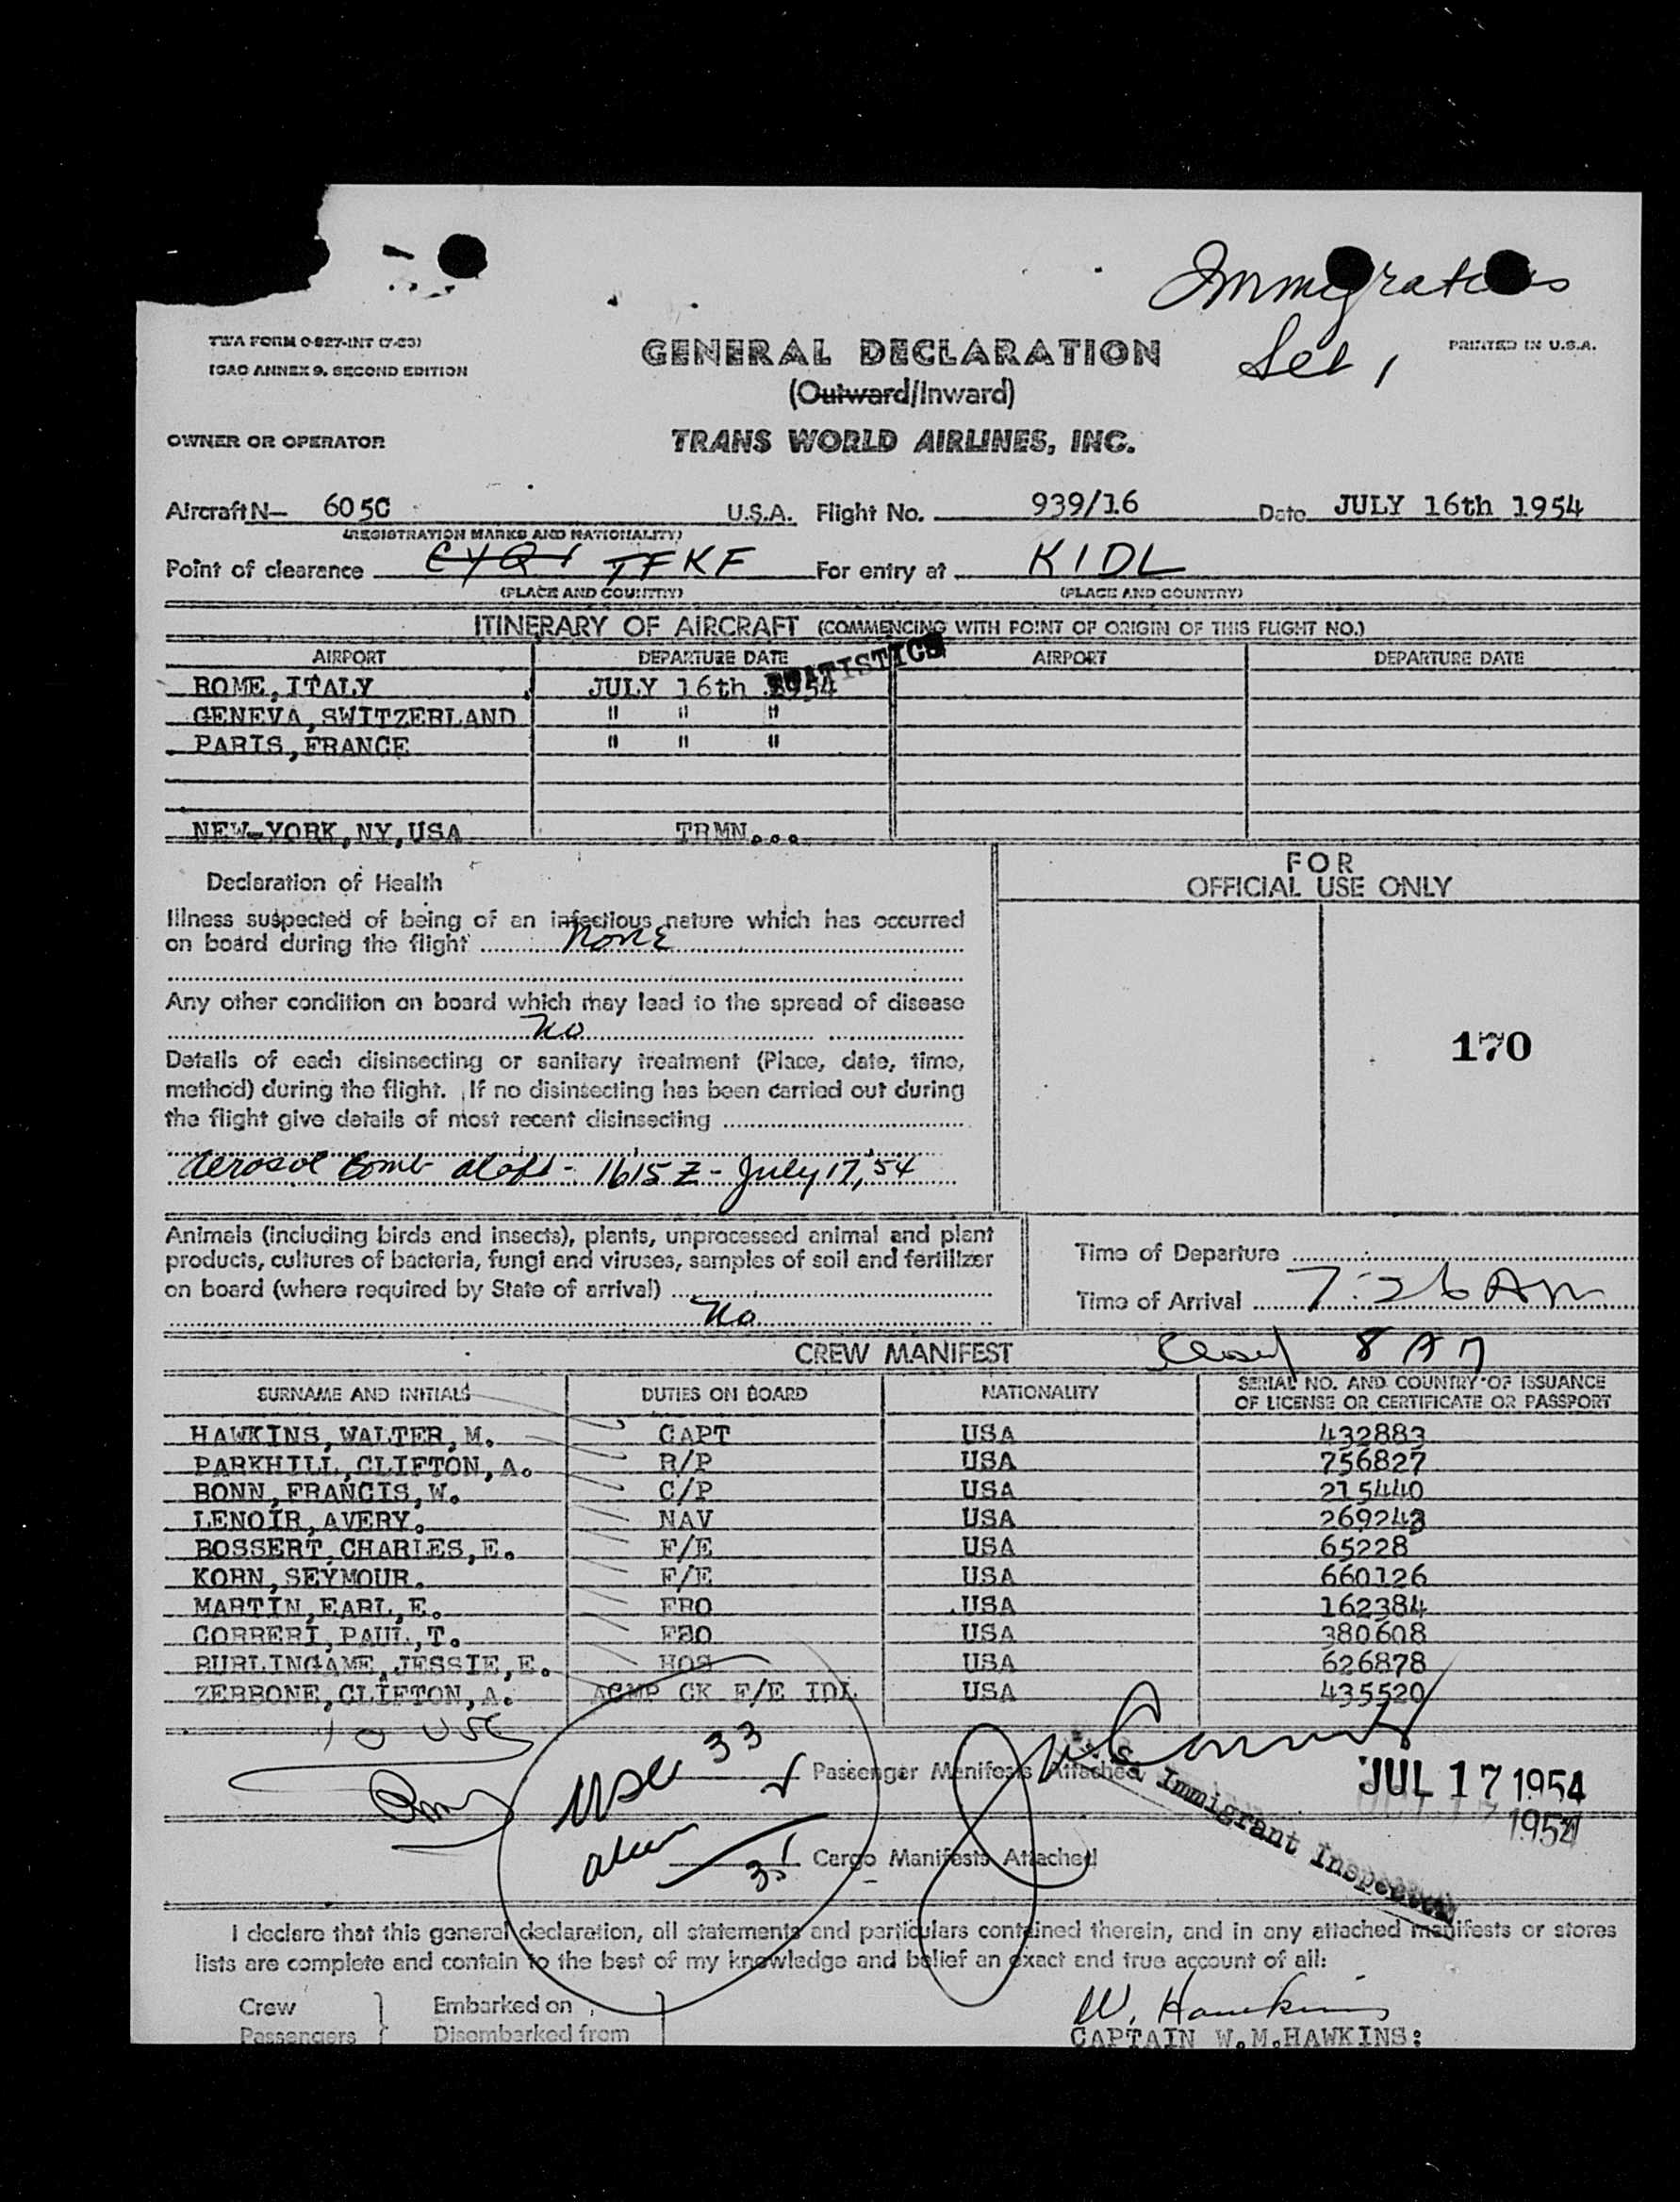 Immigrations
Set 1
TWA FORM O-827-INT (7-53)
PRINTED IN U.S.A.
ICAO ANNEX 9, SECOND EDITION
GENERAL DECLARATION
(Outward/Inward)
OWNER OR OPERATOR
TRANS WORLD AIRLINES, INC.
Aircraft N— 6050 U.S.A. Flight No. 939/16 Date JULY 16th 1954
(REGISTRATION MARKS AND NATIONALITY)
Point of clearance CYQX TFKF For entry at KIDL
(PLACE AND COUNTRY) (PLACE AND COUNTRY)
ITINERARY OF AIRCRAFT (COMMENCING WITH POINT OF ORIGIN OF THIS FLIGHT NO.)
STATISTICS
AIRPORT DEPARTURE DATE AIRPORT DEPARTURE DATE
ROME, ITALY JULY 16th 1954
GENEVA, SWITZERLAND " " "
PARIS, FRANCE " " "
NEW-YORK, NY, USA TRMN...
FOR
OFFICIAL USE ONLY
170
Declaration of Health
Illness suspected of being of an infectious nature which has occurred
on board during the flight None
Any other condition on board which may lead to the spread of disease
No
Details of each disinsecting or sanitary treatment (Place, date, time,
method) during the flight. If no disinsecting has been carried out during
the flight give details of most recent disinsecting
Aerosol Bomb aloft - 1615 Z - July 17, '54
Animals (including birds and insects), plants, unprocessed animal and plant
products, cultures of bacteria, fungi and viruses, samples of soil and fertilizer
on board (where required by State of arrival)
No
Time of Departure
Time of Arrival 7:26 AM
8 AM
CREW MANIFEST
SURNAME AND INITIALS DUTIES ON BOARD NATIONALITY SERIAL NO. AND COUNTRY OF ISSUANCE
OF LICENSE OR CERTIFICATE OR PASSPORT
HAWKINS, WALTER, M. CAPT USA 432883
PARKHILL, CLIFTON, A. R/P USA 756827
BONN, FRANCIS, W. C/P USA 215440
LENOIR, AVERY. NAV USA 269243
BOSSERT, CHARLES, E. F/E USA 65228
KORN, SEYMOUR. F/E USA 660126
MARTIN, EARL, E. FRO USA 162384
CORRERI, PAUL, T. FSO USA 380608
BURLINGAME, JESSIE, E. HOS USA 626878
ZERBONE, CLIFTON, A. ACMP CK F/E IDL USA 435520
10 USC
USC 33
Passenger Manifests Attached
U. S. Immigrant Inspector
JUL 17 1954
1954
alien 31
Cargo Manifests Attached
I declare that this general declaration, all statements and particulars contained therein, and in any attached manifests or stores
lists are complete and contain to the best of my knowledge and belief an exact and true account of all:
Crew Embarked on
Passengers Disembarked from
W. Hawkins
CAPTAIN W.M.HAWKINS: